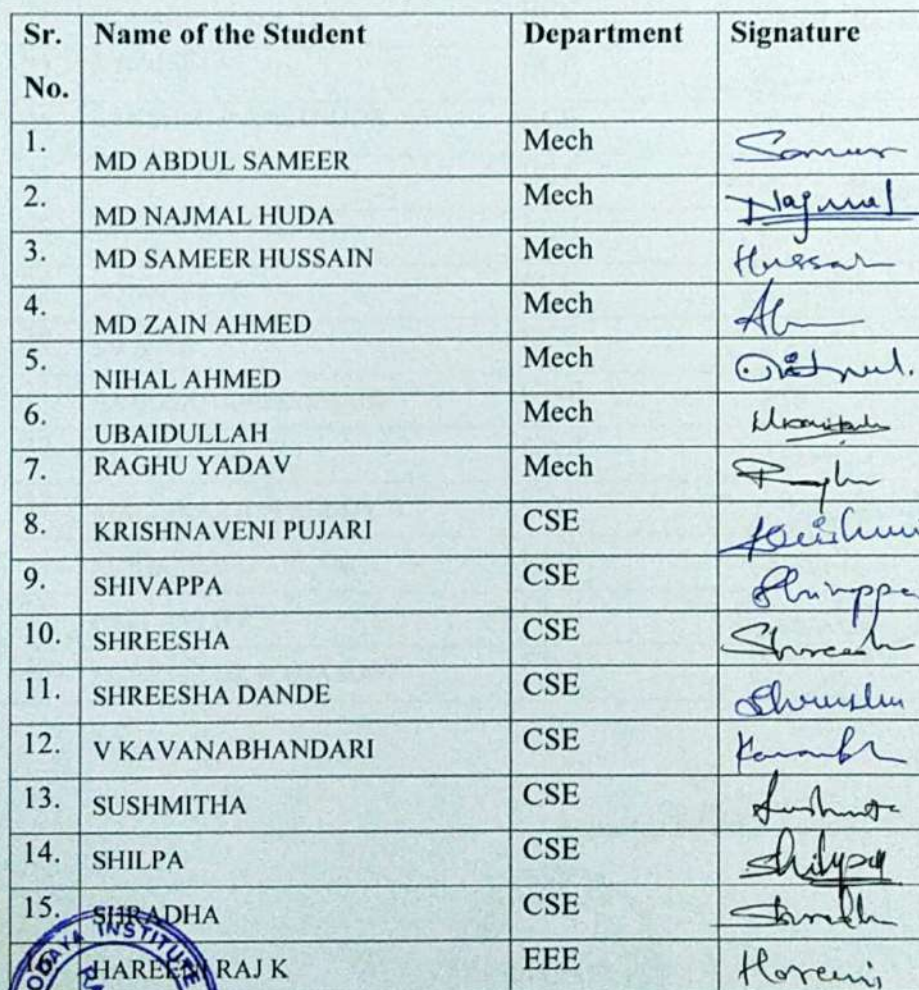 Sr. No. Name of the Student Department Signature
1. MD ABDUL SAMEER Mech Sameer
2. MD NAJMAL HUDA Mech Najmal
3. MD SAMEER HUSSAIN Mech Hussain
4. MD ZAIN AHMED Mech
5. NIHAL AHMED Mech
6. UBAIDULLAH Mech
7. RAGHU YADAV Mech Raghu
8. KRISHNAVENI PUJARI CSE
9. SHIVAPPA CSE Shivappa
10. SHREESHA CSE
11. SHREESHA DANDE CSE
12. V KAVANABHANDARI CSE
13. SUSHMITHA CSE
14. SHILPA CSE Shilpa
15. SHRADHA CSE
HAREEN RAJ K EEE
INSTITUTE